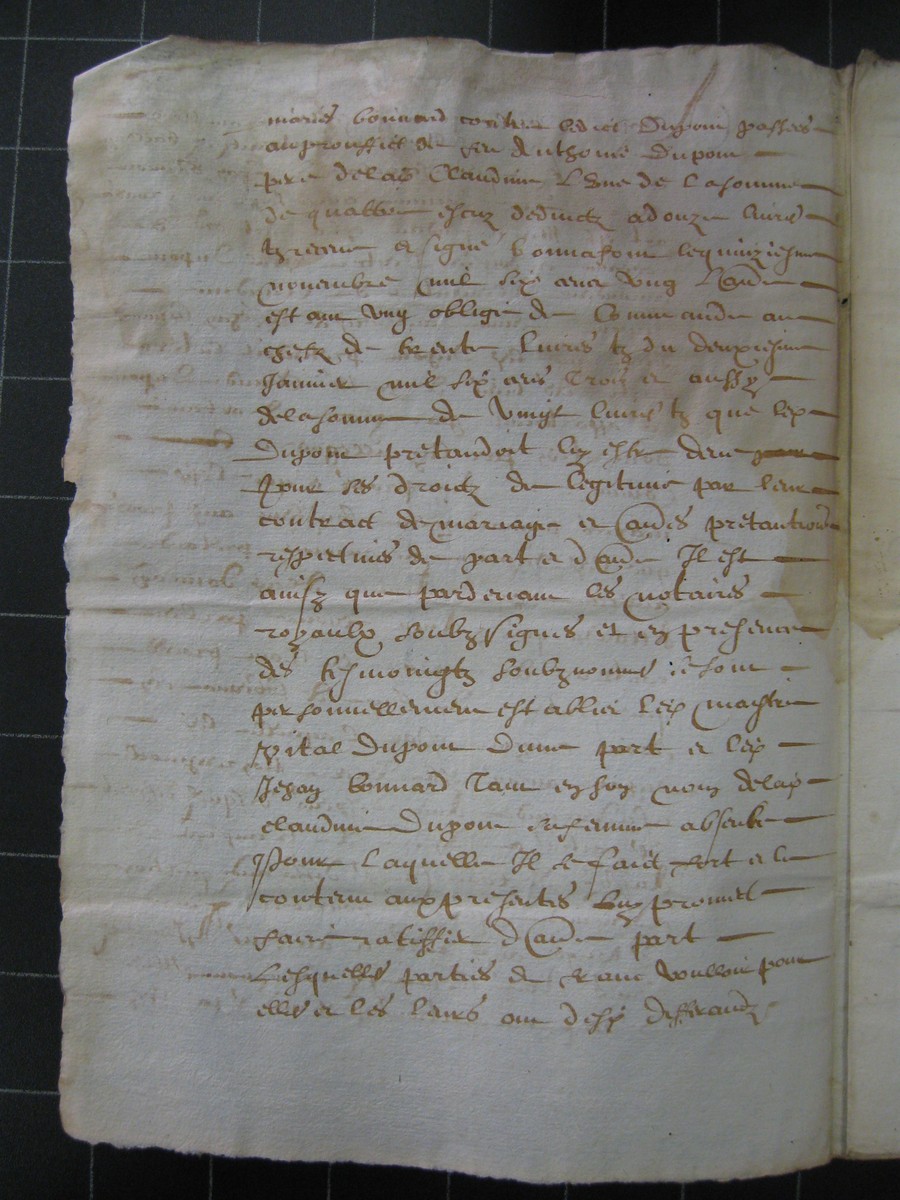 mariés bonnard contre ledict Dupont passees
au prouffict de feu Anthoine Dupont
pere delad Claudine L'une de la somme
de quattre escuz deduictz a douze livres
tz receue et signé bonnafont le quinziesme
novembre mil six cens ung L'autre
estant ung obligé de Commande au
chefz de trente livres tz du deuxiesme
Janvier mil six cens trois et aussy
dela somme de vingt livres tz que led
Dupont pretandoit luy estre deue
pour ses droictz de legitime par leur
contract de mariaige et autres pretantions
respectives de part et d'autre Il est
ainsy que pardevant les notaires
royaulx soubz signes et en presence
des tesmoingtz soubznommés ce sont
personnellement establiz led maistre
Vital Dupont d'une part et led
Jehan bonnard tant en son nom delad
claudine Dupont sa femme absente
Pour laquelle Il se faict fort et le
contenu aux presentes luy promet
faire ratiffier d'autre part
Lesquelles parties de leur voulloir pour
elles et les leurs ont desd differandz